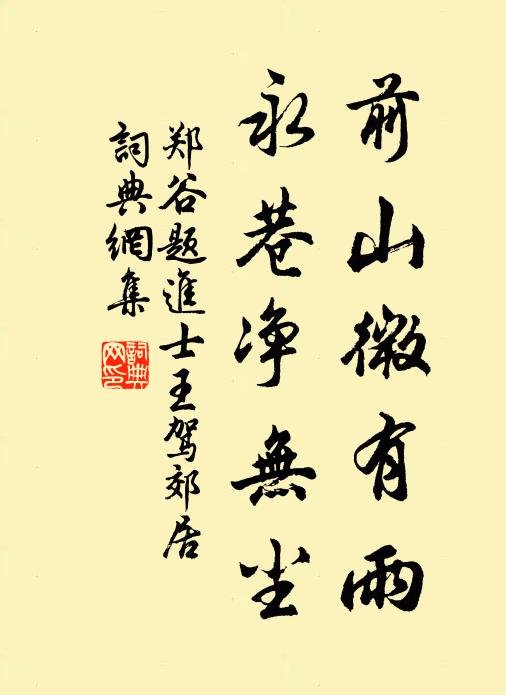 前山微有雨
永巷净無尘
郑谷题進士王驾郊居
詞典網集
詞典
网印